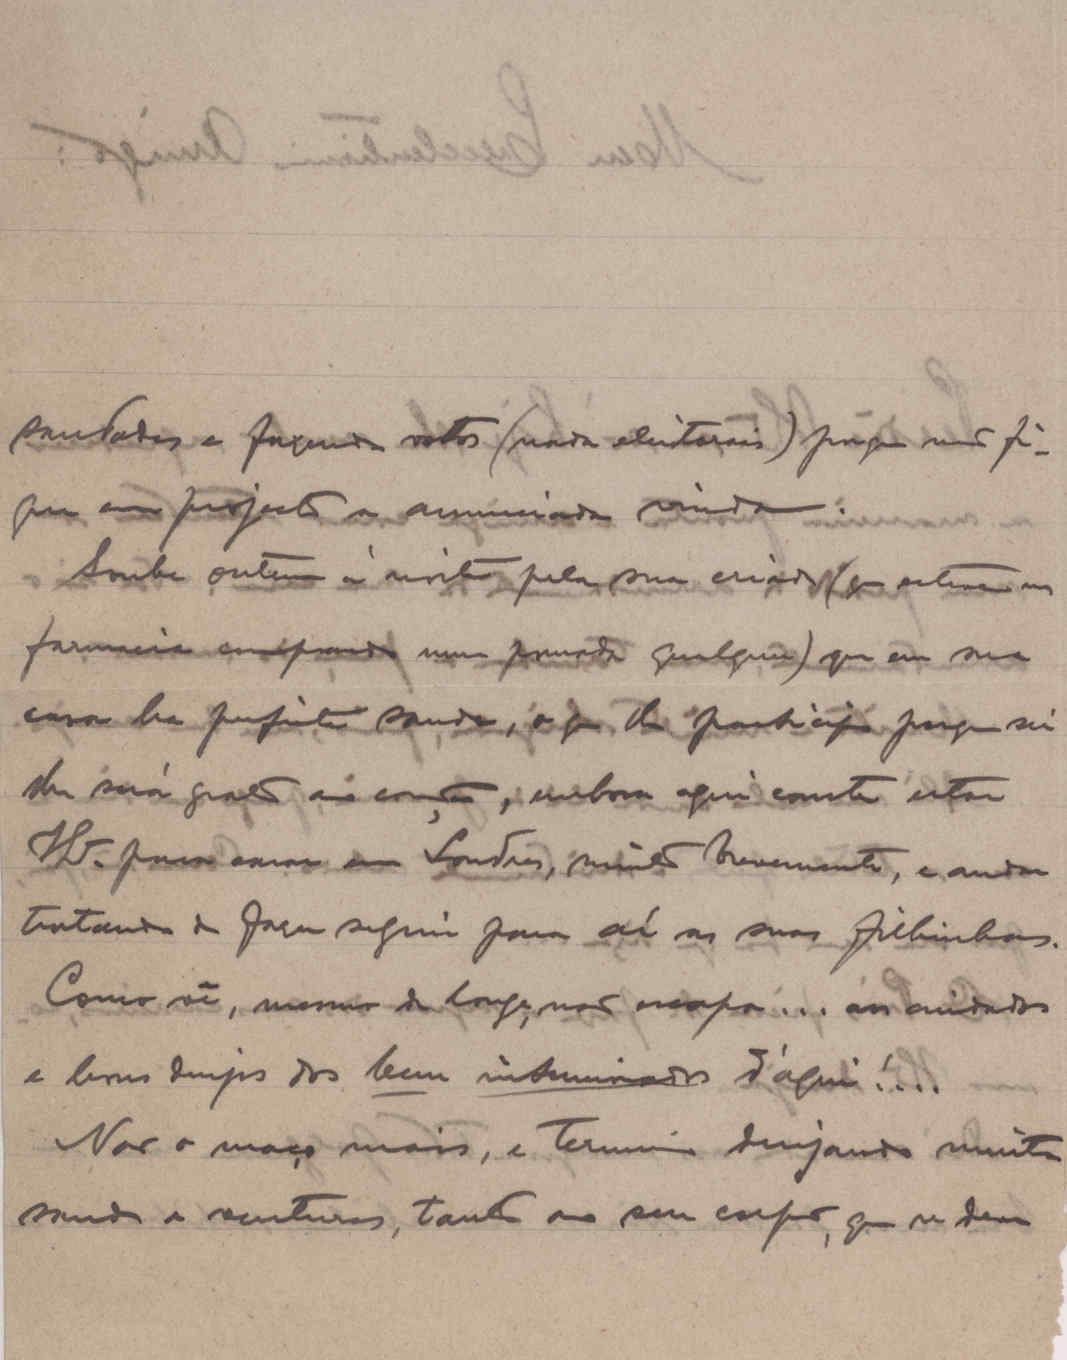 saudades e fazendo votos (nada eleitorais) porque não fi-
que em projecto a anunciada vinda.
Soube ontem á noite pela sua criada (que esteve na
farmacia comprando uma pomada qualquer) que em sua
casa ha perfeita saude, o que lhe participo porque sei
lhe será grato ao coração, embora aqui conste estar
para casar em Londres, muito brevemente, e andar
tratando de fazer seguir para aí as suas filhinhas.
Como vê, mesmo de longe, não escapa... aos cuidados
e bons desejos dos bem intencionados d'aqui!...
Não o maço mais, e termino desejando muita
saude e venturas, tanto ao seu corpo, que se deve
Meu Excelentissimo Amigo: